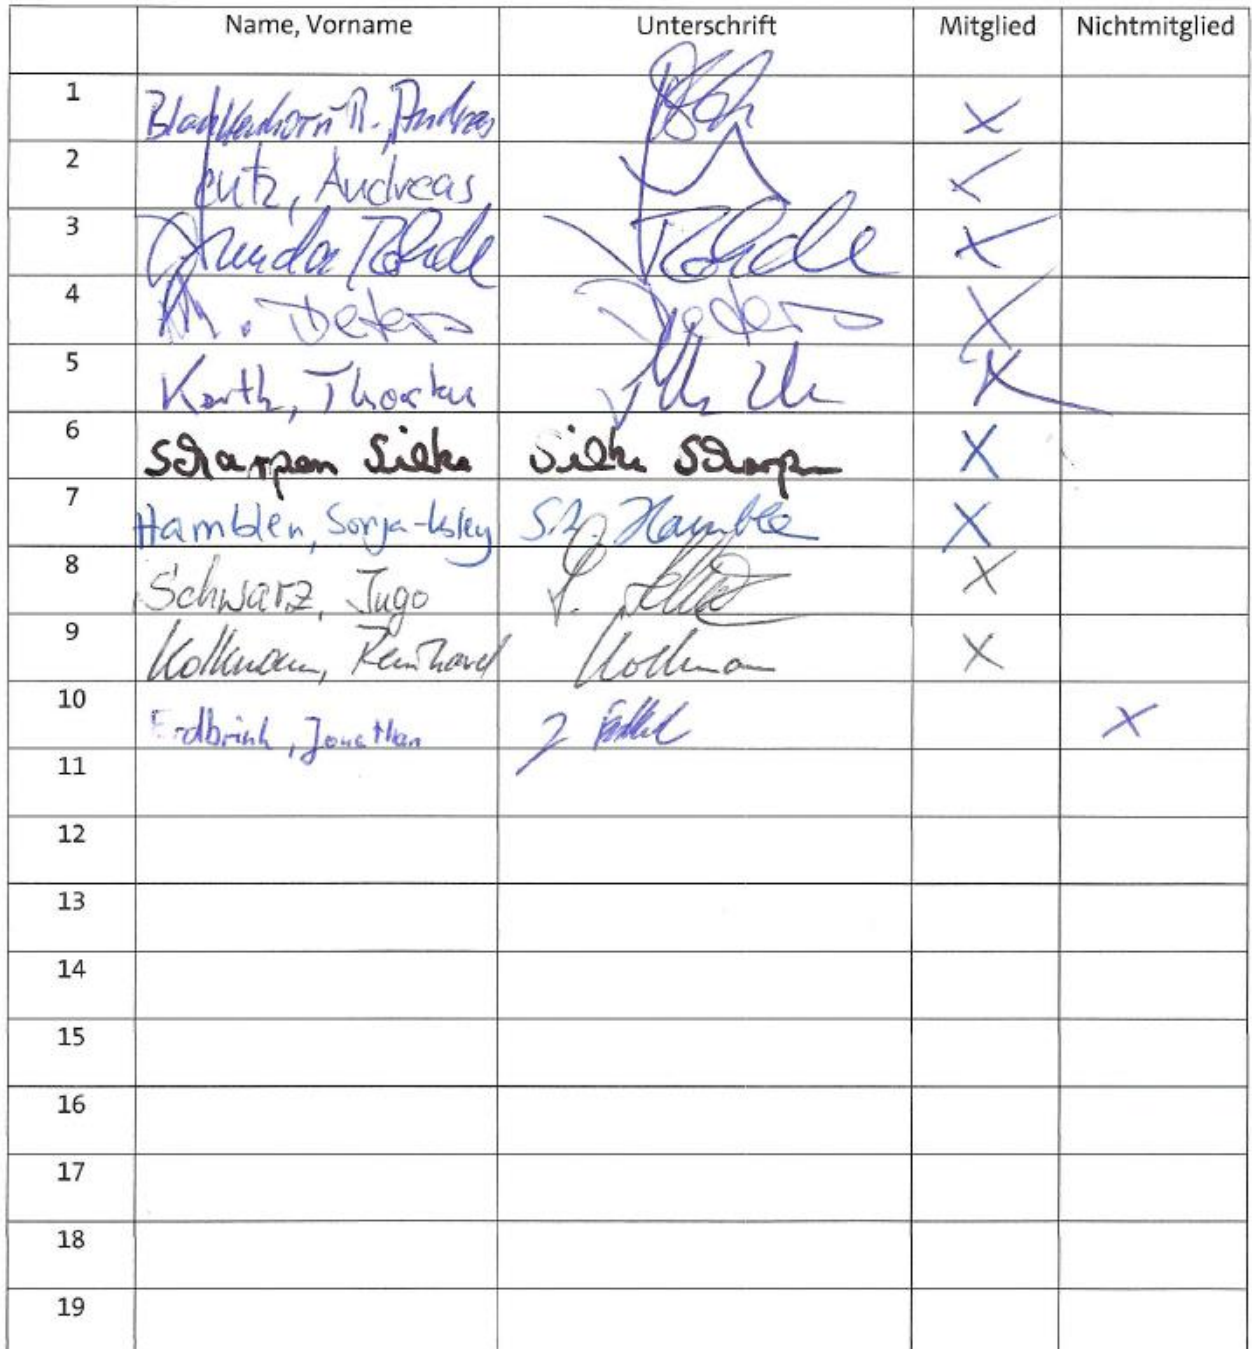 Name, Vorname Unterschrift Mitglied Nichtmitglied
1 Andreas X
2 Lutz, Andreas X
3 Rohde Rohde X
4 M. Deters Deters X
5 Korth, Thorsten X
6 Scharpen Silke Silke Scharpen X
7 Hamblen, Sonja-Lesley S.L. Hamblen X
8 Schwarz, Ingo X
9 Kollmann, Reinhard Kollmann X
10 Erdbrink, Jonathan X
11
12
13
14
15
16
17
18
19